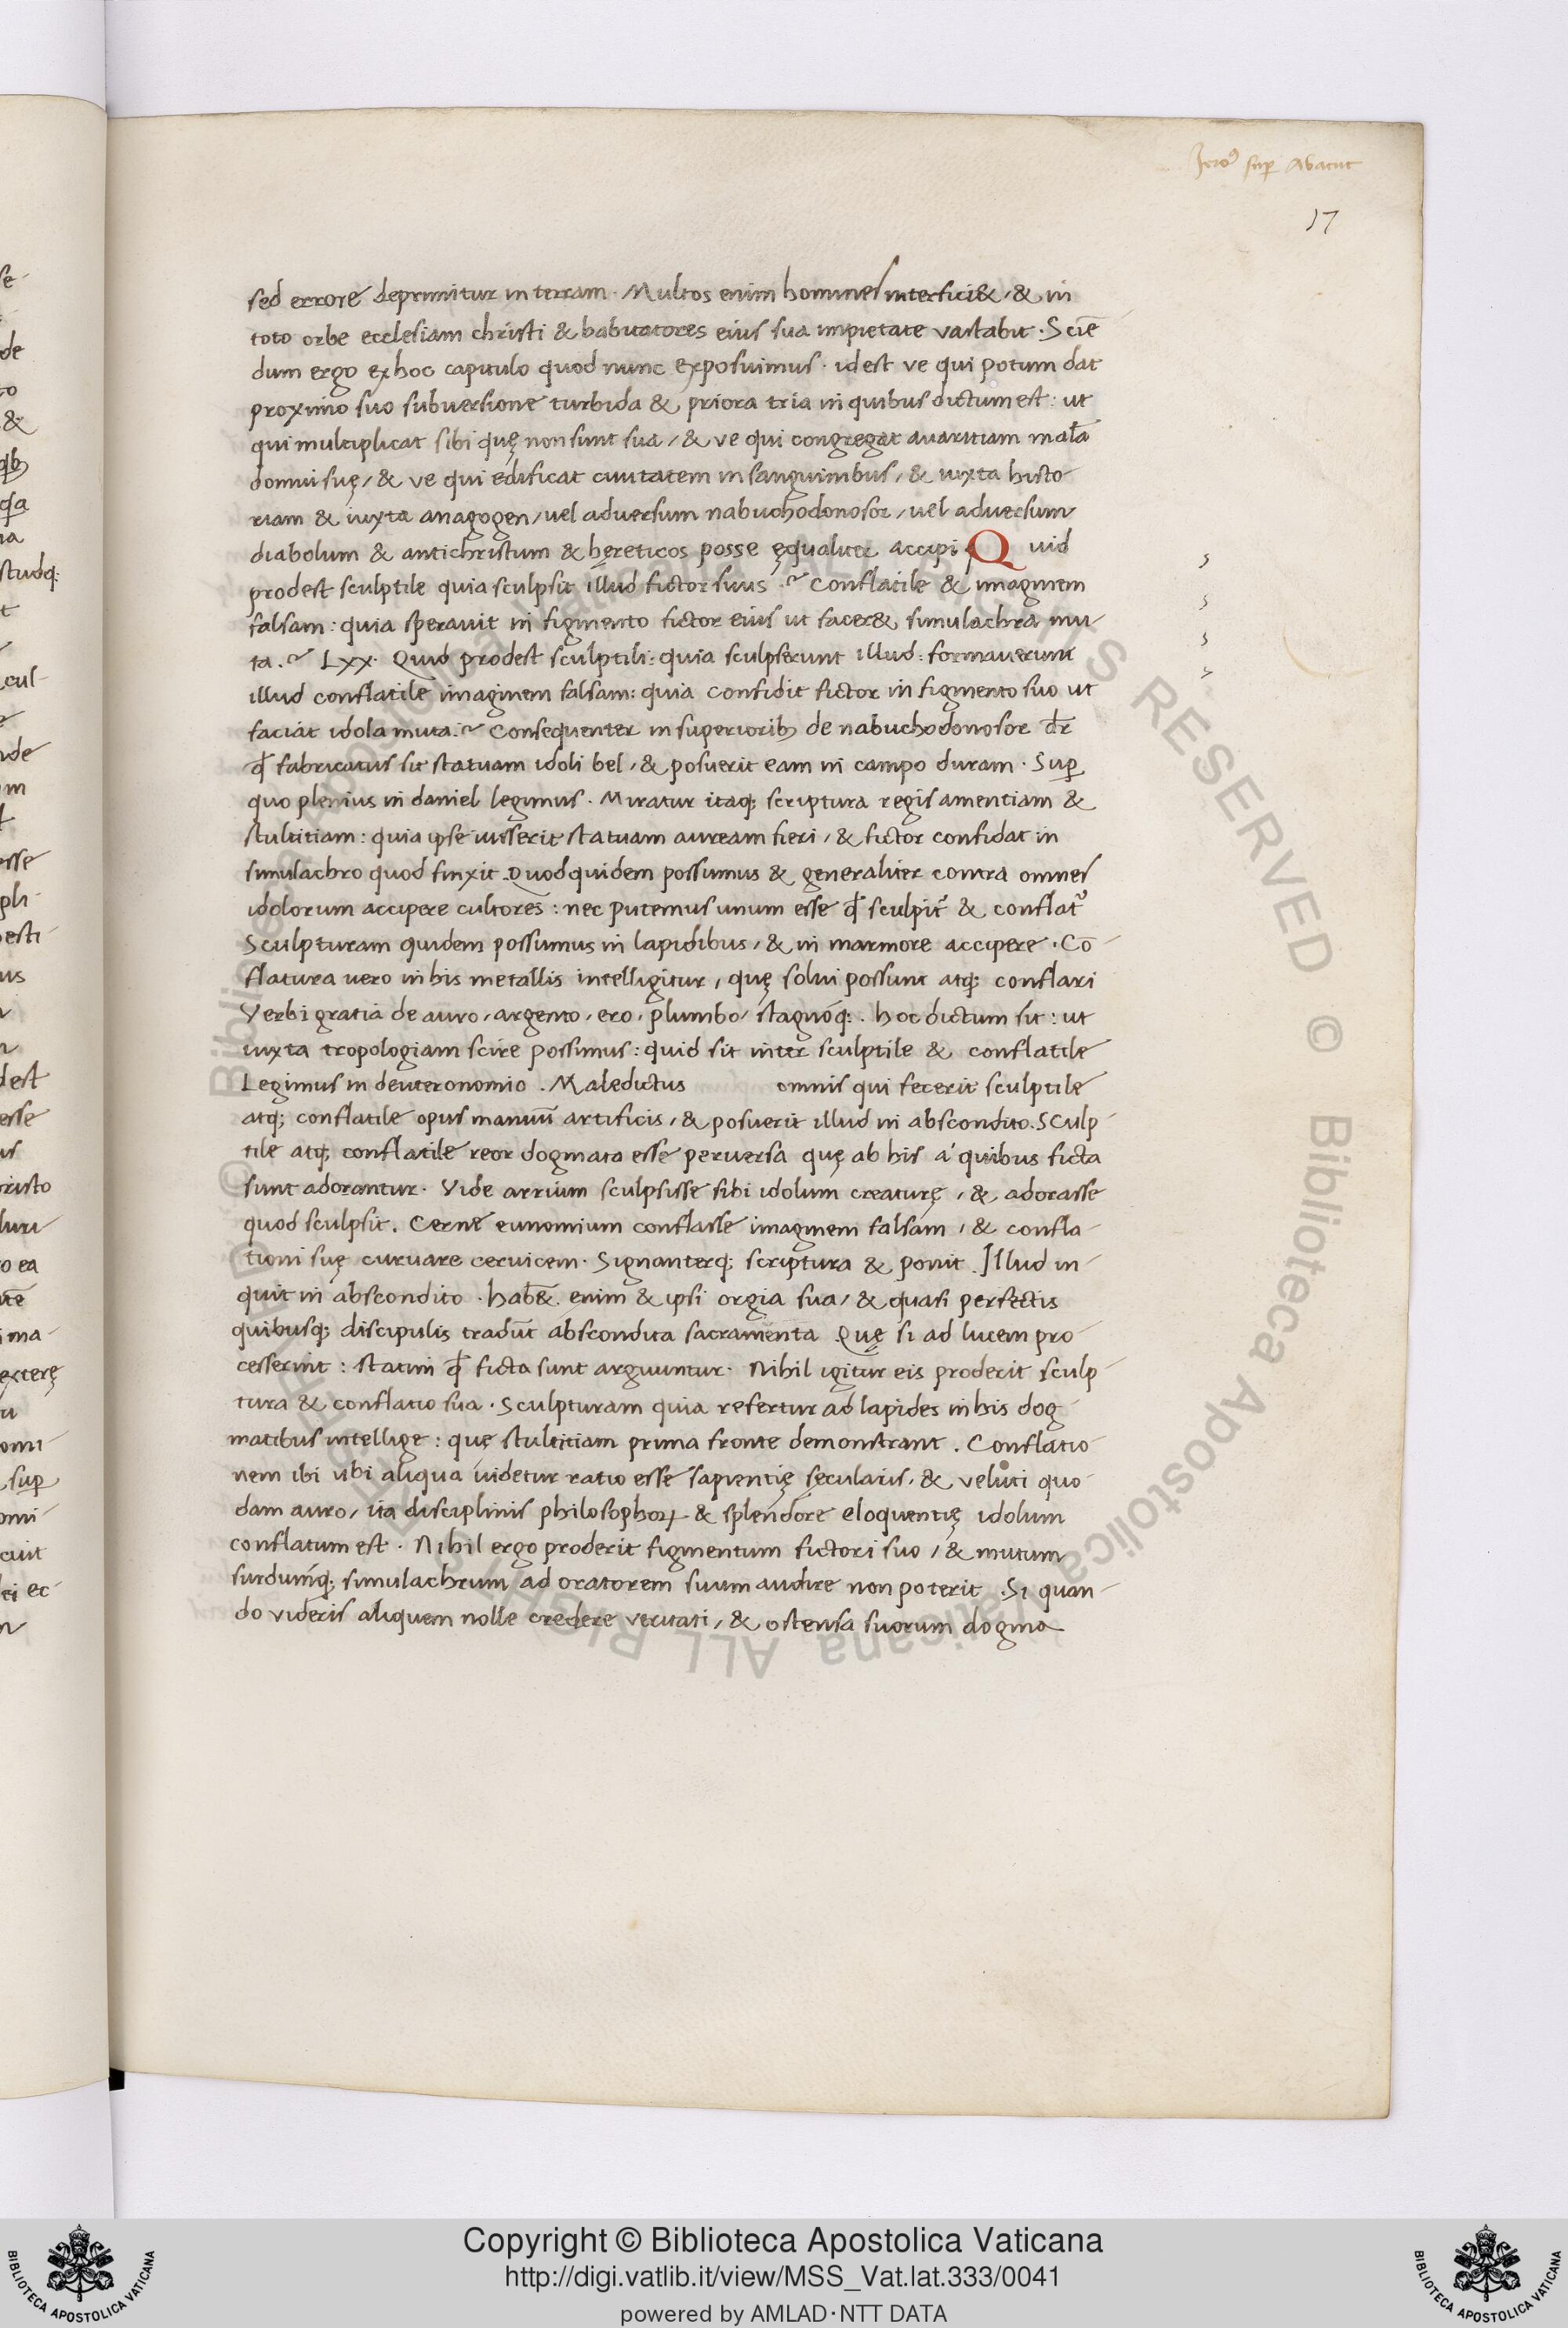 Iero⁹ suꝑ Abacuc
17
sed errore deprimitur in terram. Multos enim homines interfici&, & in
toto orbe ecclesiam christi & habitatores eius sua impietate vastabit. Sciē
dum ergo ex hoc capitulo quod nunc exposuimus. idest ve qui potum dat
proximo suo subversione turbida & priora tria in quibus dictum est: ut
qui multiplicat sibi quę non sunt sua, & ve qui congregat avaritiam malā
domui suę, & ve qui edificat civitatem in sanguinibus, & iuxta histo
riam & iuxta anagogen, vel adversum nabuchodonosor, vel adversum
diabolum & antichristum & hęreticos posse ęqualiter accipi. Quid
prodest sculptile quia sculpsit illud fictor suus? Conflatile & imaginem
falsam: quia speravit in figmento fictor eius ut facer& simulachra mu
ta? Lxx. Quid prodest sculptili: quia sculpserunt illud: formaverunt
illud conflatile imaginem falsam: quia confidit fictor in figmento suo ut
faciat idola muta? Consequenter in superiorib; de nabuchodonosor dr̄
ꝙ fabricatus sit statuam idoli bel, & posuerit eam in campo duram. Suꝑ
quo plenius in daniel legimus. Miratur itaq; scriptura regis amentiam &
stultitiam: quia ipse iusserit statuam auream fieri, & fictor confidat in
simulachro quod finxit. Quod quidem possumus & generaliter contra omnes
idolorum accipere cultores: nec putemus unum esse ꝙ sculpit᷑ & conflat᷑
Sculpturam quidem possumus in lapidibus, & in marmore accipere. Cō
flatura vero in his metallis intelligitur, quę solvi possunt atq; conflari
Verbi gratia de auro, argento, ero, plumbo, stagnóq;. hoc dictum sit: ut
iuxta tropologiam scire possimus: quid sit inter sculptile & conflatile
Legimus in deuteronomio. Maledictus omnis qui fecerit sculptile
atq; conflatile opus manuū artificis, & posuerit illud in abscondito. Sculp
tile atq; conflatile reor dogmata esse perversa quę ab his á quibus ficta
sunt adorantur. Vide arrium sculpsisse sibi idolum creaturę, & adorasse
quod sculpsit. Cerne eunomium conflasse imaginem falsam, & confla
tioni suę curvare cervicem. Signanterq; scriptura & ponit. Illud in
quit in abscondito. hab& enim & ipsi orgia sua, & quasi perfectis
quibusq; discipulis tradūt abscondita sacramenta. Quę si ad lucem pro
cesserint: statim ꝙ ficta sunt arguuntur. Nihil igitur eis proderit sculp
tura & conflatio sua. Sculpturam quia refertur ad lapides in his dog
matibus intellige: quę stultitiam prima fronte demonstrant. Conflatio
nem ibi ubi aliqua videtur ratio esse sapientię sęcularis, & veluti quo
dam auro, ita disciplinis philosophoꝝ & splendore eloquentię idolum
conflatum est. Nihil ergo proderit figmentum fictori suo, & mutum
surdumq́; simulachrum adoratorem suum audire non poterit. Si quan
do videris aliquem nolle credere veritati, & ostensa suorum dogma
Copyright © Biblioteca Apostolica Vaticana
http://digi.vatlib.it/view/MSS_Vat.lat.333/0041
powered by AMLAD·NTT DATA